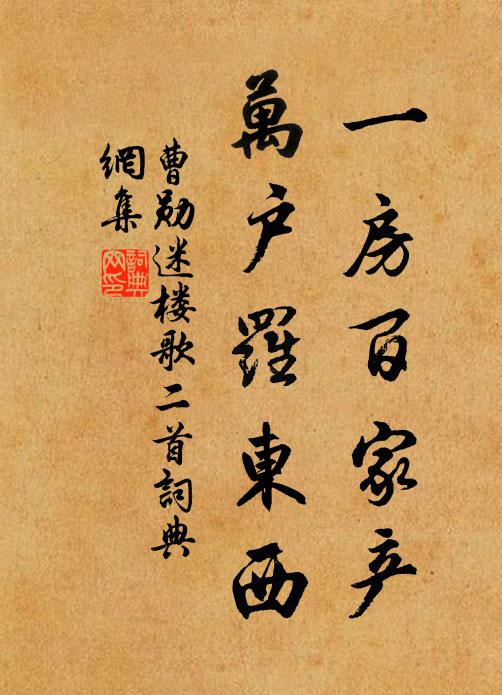 一房百家产
萬户羅東西
曹勋迷楼歌二首詞典
網集
詞典
网印